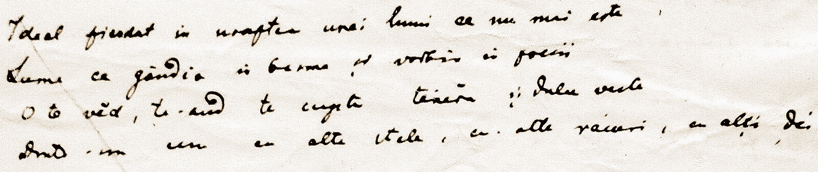 Ideal pierdut in noaptea unei lumi ce nu mai este
Lume ce gândia in basme și vorbia in poezii
O te văd, te-aud te cuget tineră și dulce veste
Dintr-un cer cu alte stele, cu-alte raiuri, cu alți ḑei